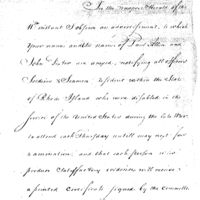 In the
instant I observe an advertisement, to which
your name and the name of Paul Allen and
John are annexed, notifying all officers
Soldiers & Seamen resident within the State
of Rhode Island who were disabled in the
service of the United States during the late War
to attend each Thursday untill may next for
examination; and that each person who
produces Satisfactory evidence will receive
a printed Certificate signed by the Committee